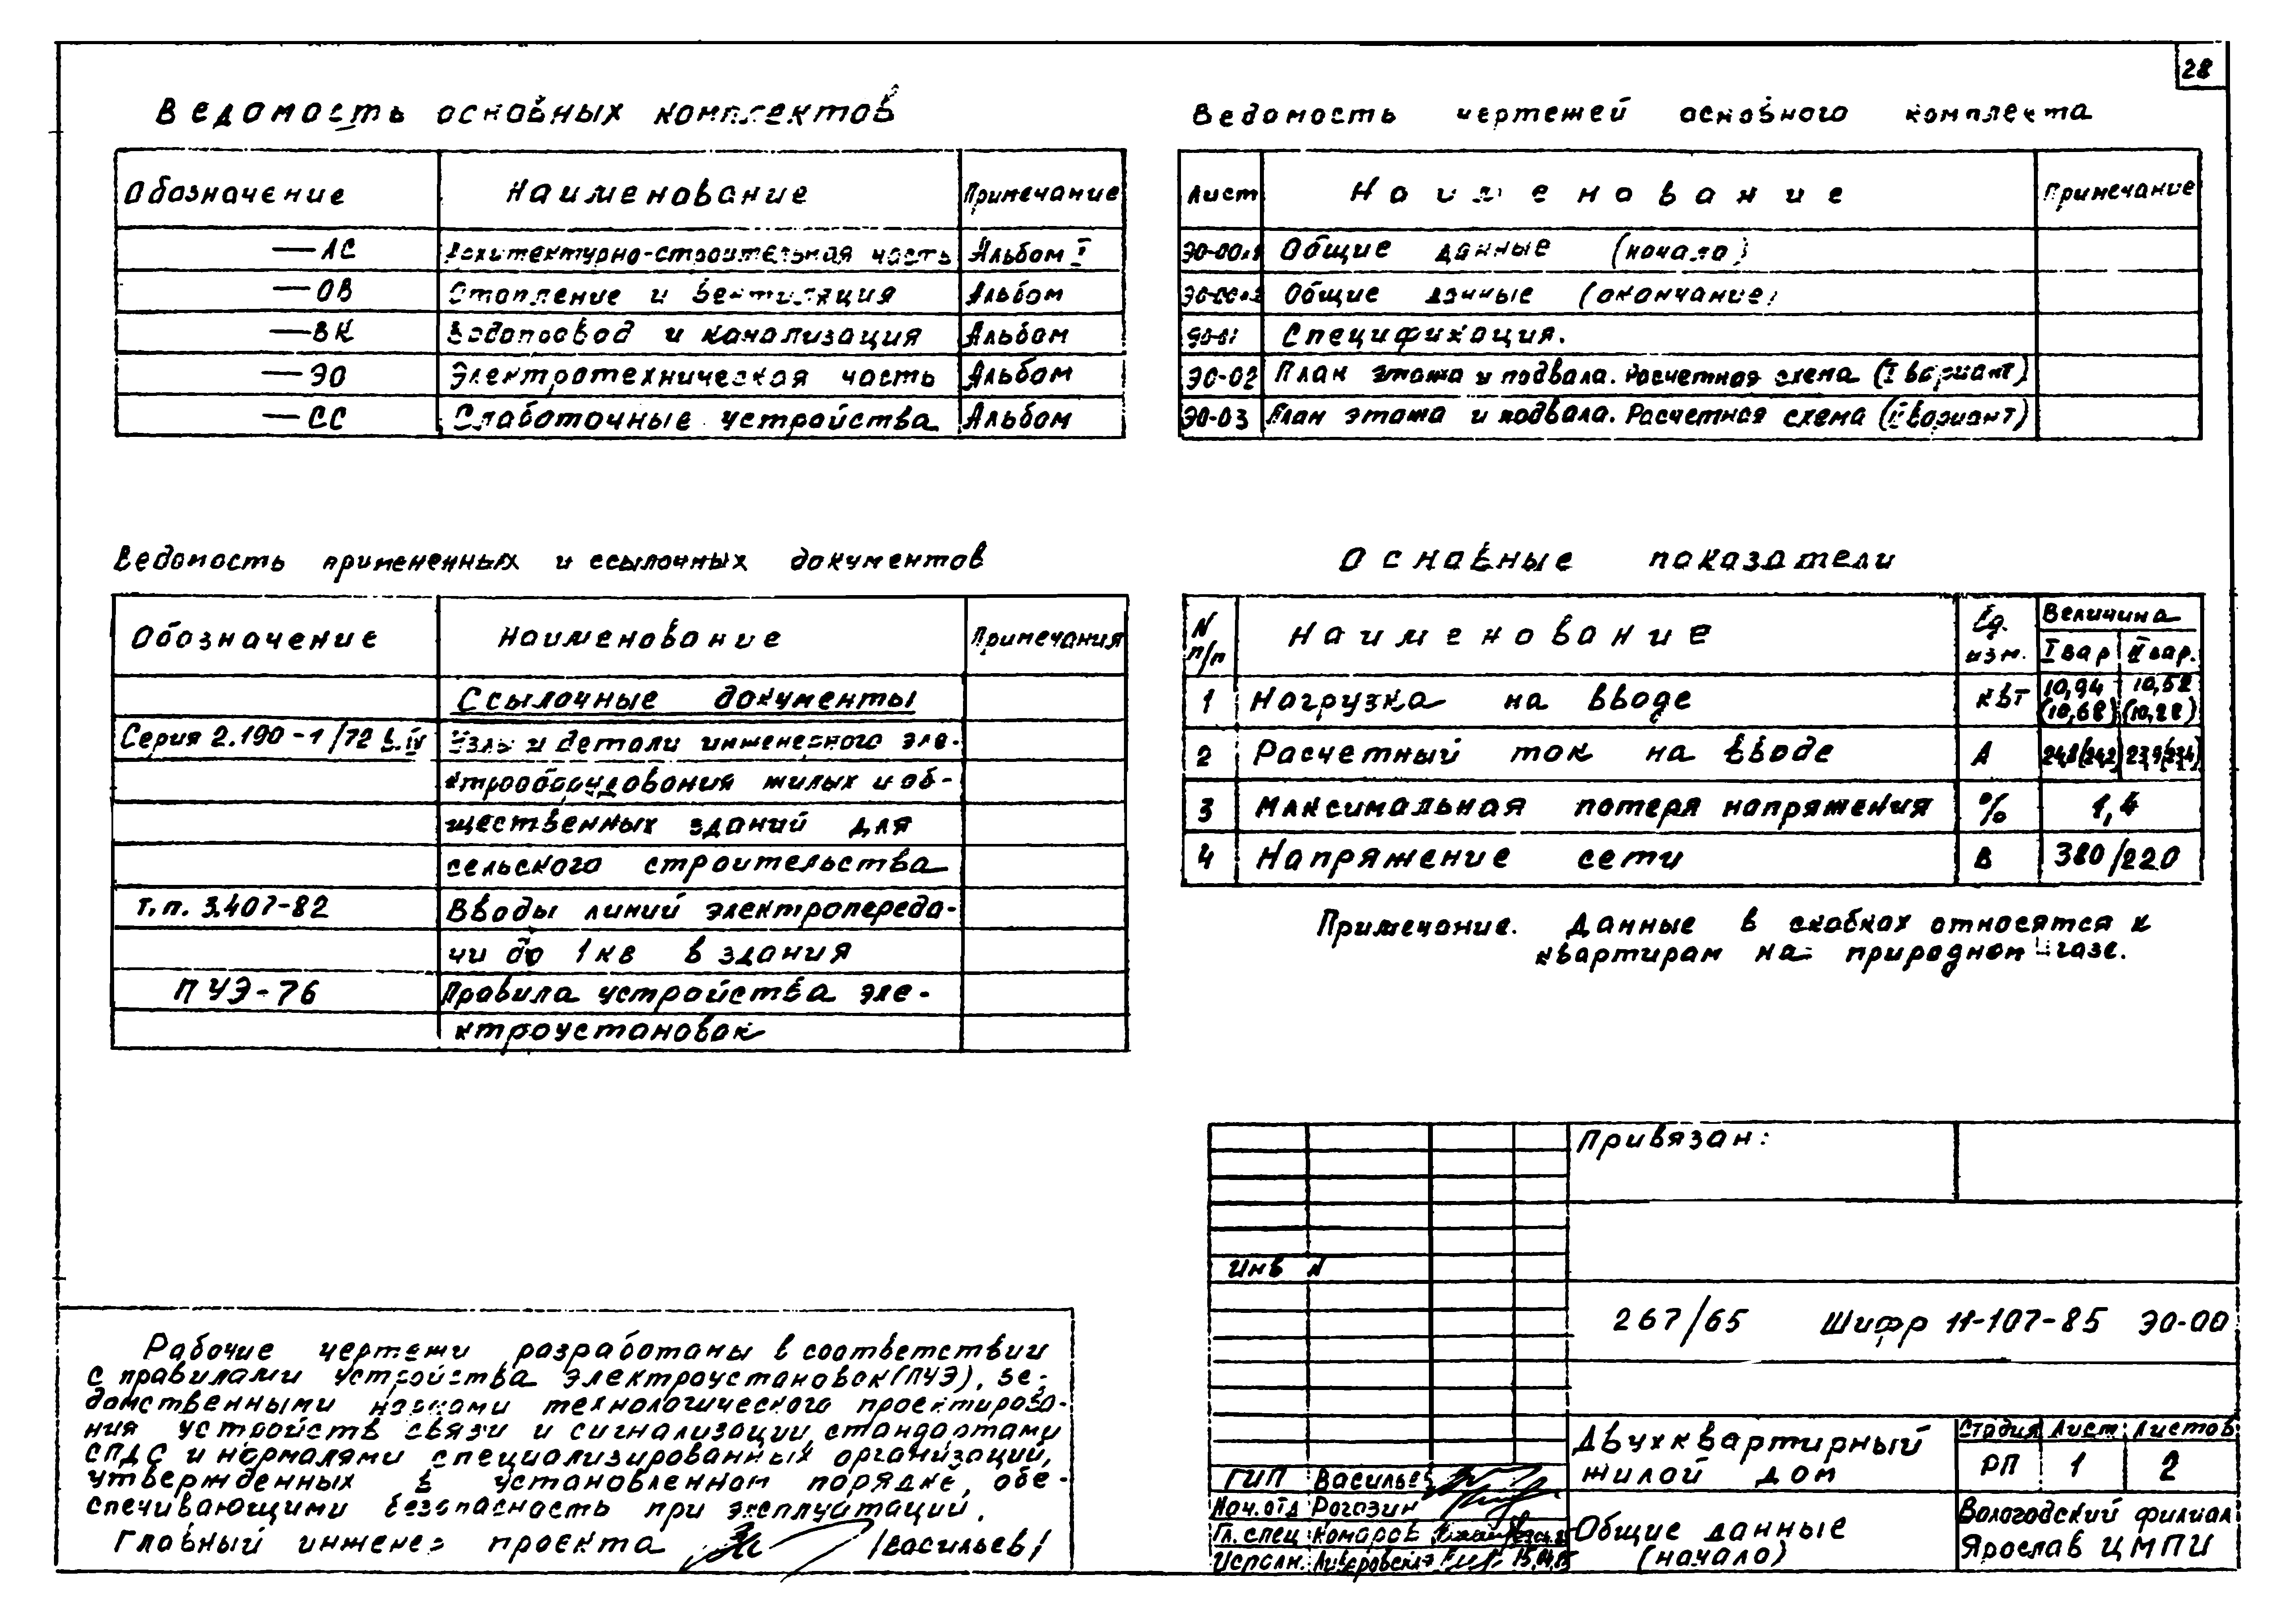 28
Ведомость основных комплектов
Обозначение Наименование Примечание
— АС Архитектурно-строительная часть Альбом I
— ОВ Отопление и вентиляция Альбом
— ВК Водопровод и канализация Альбом
— ЭО Электротехническая часть Альбом
— СС Слаботочные устройства Альбом
Ведомость чертежей основного комплекта
Лист Наименование Примечание
Общие данные (начало)
Общие данные (окончание)
ЭО-01 Спецификация.
ЭО-02 План этажа и подвала. Расчетная схема (I вариант)
ЭО-03 План этажа и подвала. Расчетная схема (II вариант)
Ведомость примененных и ссылочных документов
Обозначение Наименование Примечания
Ссылочные документы
Серия 2.190-1/72 в.IV Узлы и детали инженерного эле-
ктрооборудования жилых и об-
щественных зданий для
сельского строительства
т.п. 3.407-82 Вводы линий электропереда-
чи до 1 кв в здания
ПУЭ-76 Правила устройства эле-
ктроустановок
Основные показатели
N п/п Наименование Ед. изм. Величина
I вар II вар.
1 Нагрузка на вводе квт 10,94 (10,68) 10,52 (10,28)
2 Расчетный ток на вводе А 24,8(24,2) 23,9(23,4)
3 Максимальная потеря напряжения % 1,4
4 Напряжение сети В 380/220
Примечание. Данные в скобках относятся к
квартирам на природном газе.
Рабочие чертежи разработаны в соответствии
с правилами устройства электроустановок (ПУЭ), ве-
домственными нормами технологического проектирова-
ния устройств связи и сигнализации, стандартами
СПДС и нормалями специализированных организаций,
утвержденных в установленном порядке, обе-
спечивающими безопасность при эксплуатации.
Главный инженер проекта /Васильев/
Привязан:
Инв N
267/65 Шифр 11-107-85 ЭО-00
Двухквартирный
жилой дом
Стадия Лист Листов
РП 1 2
ГИП Васильев
Нач.отд Рогозин
Гл. спец Комаров
Исполн. Ливеровская 15.04.85
Общие данные
(начало)
Вологодский филиал
Ярослав ЦМПИ